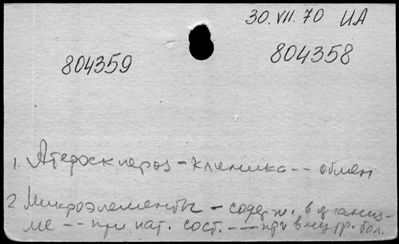 30.VII.70 ИА
804359 804358
1. Атеросклероз – клиника -- обмен
2 Микроэлементы – содерж. в организ-
ме -- при пат. сост. -- при внутр. бол.